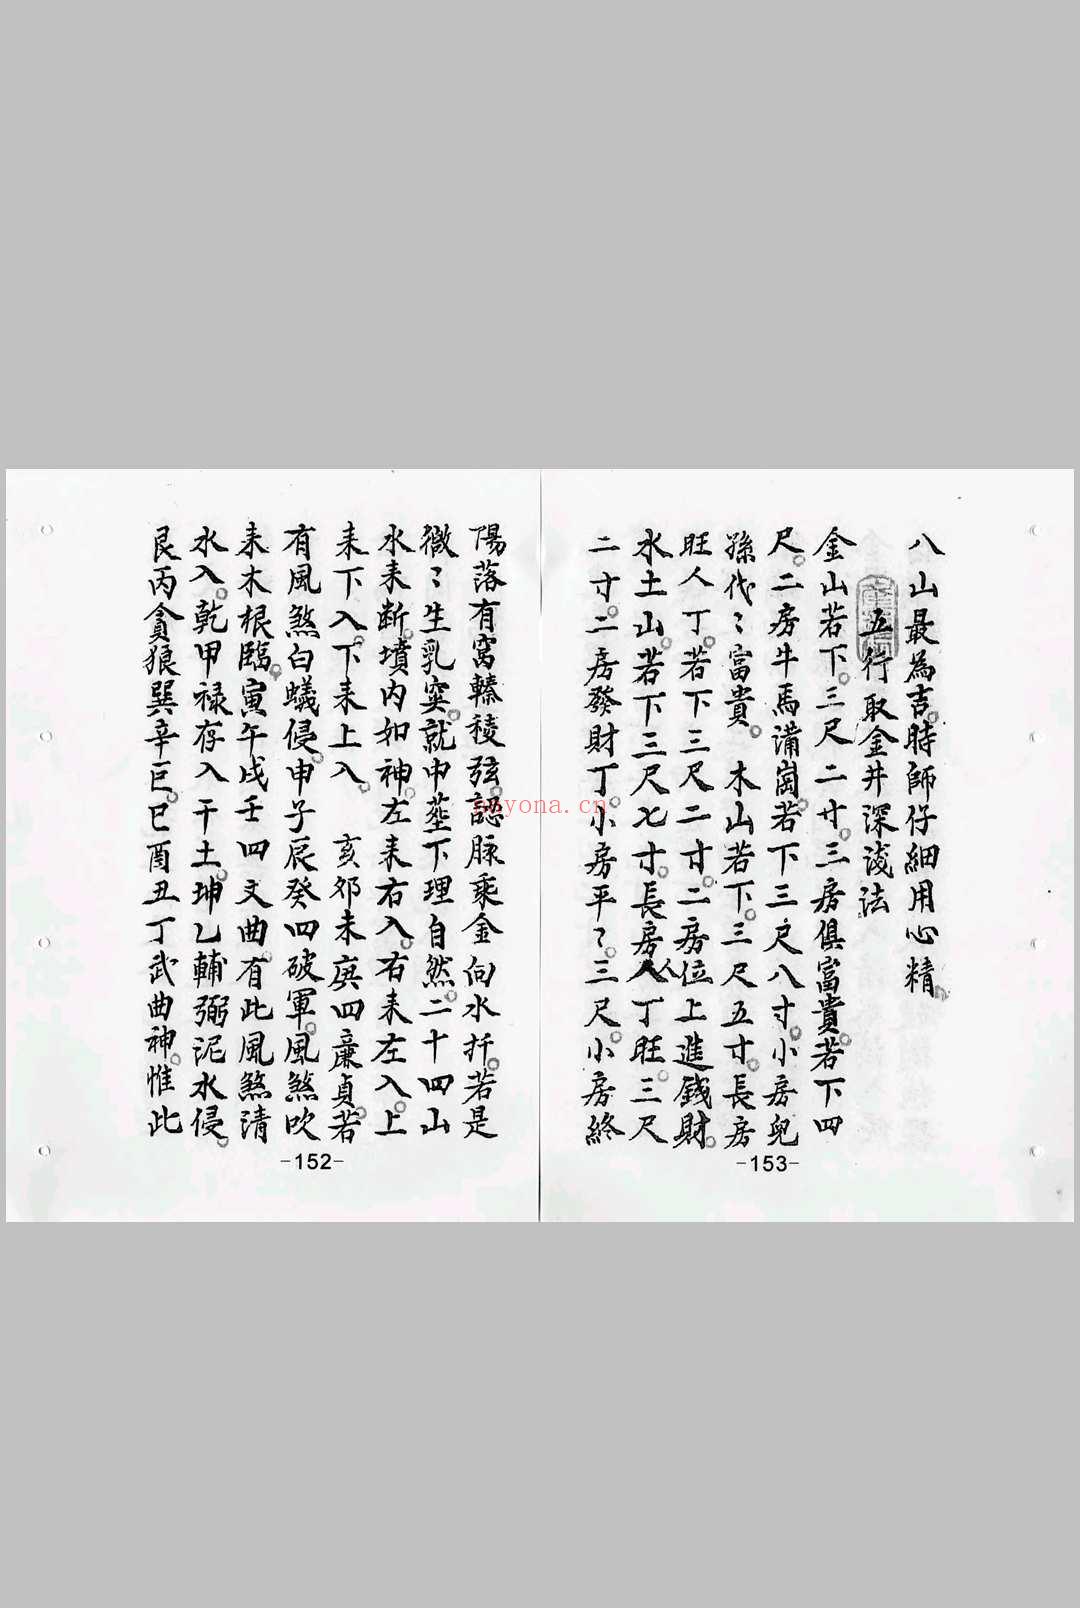 陽落有窩轃稜弦認脉乘金向水扦若是
微〻生乳突就中塟下理自然二十四山
水来断墳内如神左来右入右来左入上
来下入下来上入　亥卯未庚四廉貞若
有風煞白蟻侵申子辰癸四破軍風煞吹
来木根臨寅午戌壬四文曲有此風煞清
水入乾甲禄存入干土坤乙輔弼泥水侵
艮丙貪狼巽辛巨巳酉丑丁武曲神惟此
-152-
八山最為吉時師仔細用心精
五行取金井深淺法
金山若下三尺二寸三房俱富貴若下四
尺二房牛馬滿崗若下三尺八寸小房兒
孫代〻富貴　木山若下三尺五寸長房
旺人丁若下三尺二寸二房位上進錢財
水土山若下三尺七寸長房人丁旺三尺
二寸二房發財丁小房平〻三尺小房終
-153-
nayona.cn